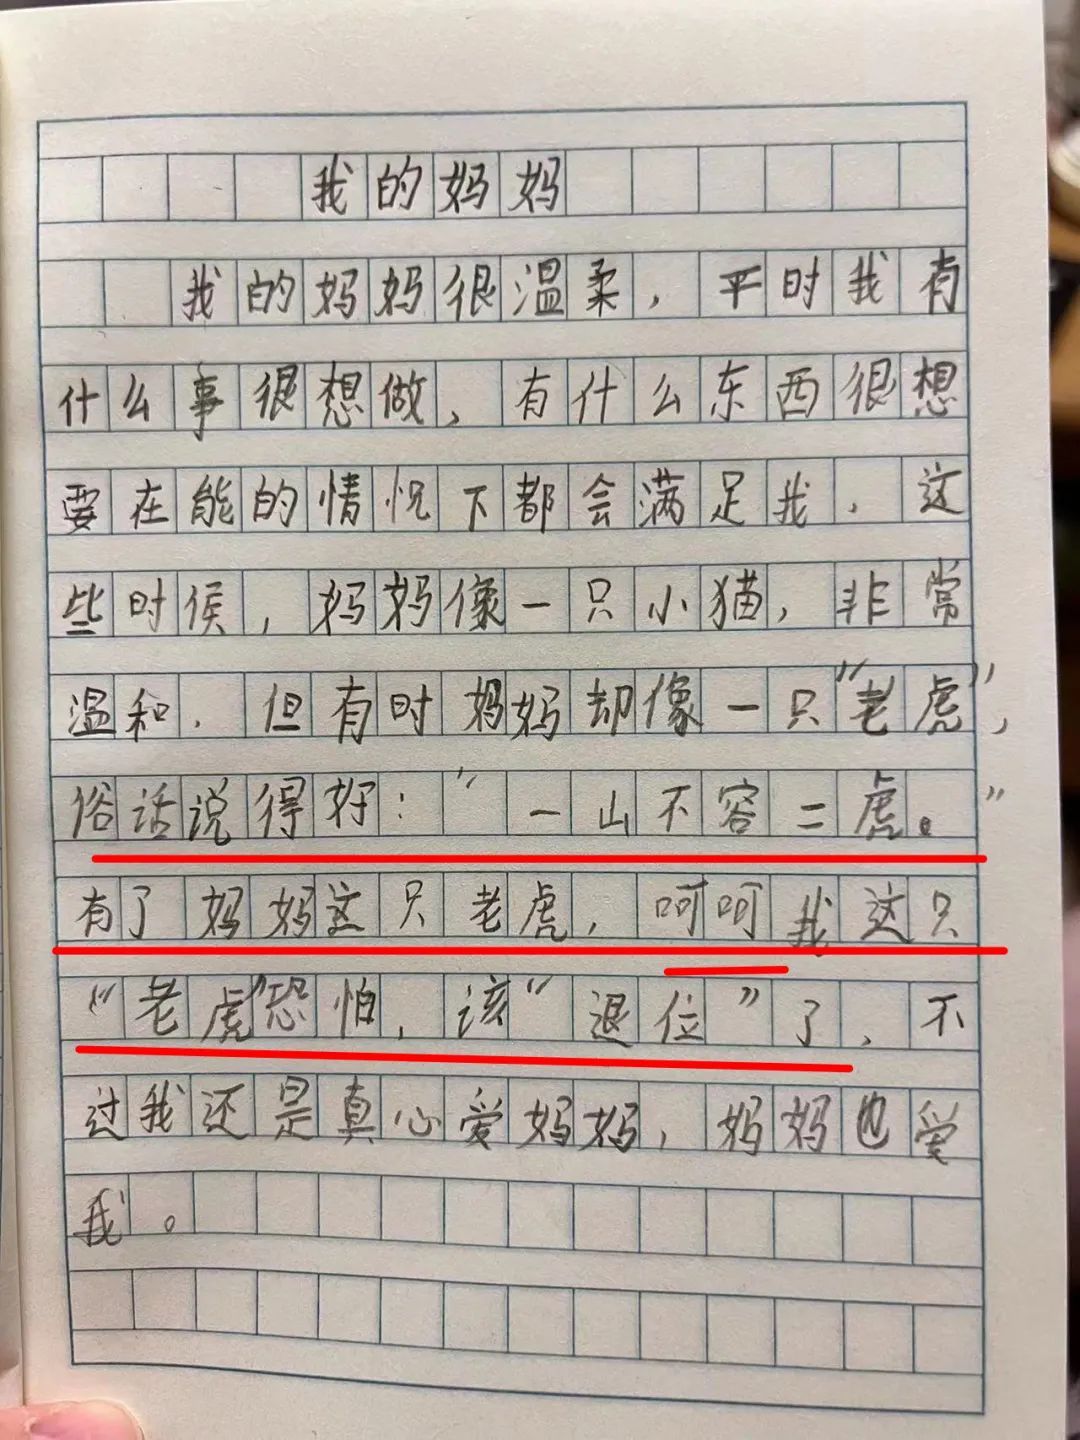 我的妈妈
我的妈妈很温柔，平时我有
什么事很想做，有什么东西很想
要在能的情况下都会满足我，这
些时侯，妈妈像一只小猫，非常
温和．但有时妈妈却像一只“老虎”，
俗话说得好：“一山不容二虎。”
有了妈妈这只老虎，呵呵我这只
“老虎”恐怕，该“退位”了，不
过我还是真心爱妈妈，妈妈也爱
我。